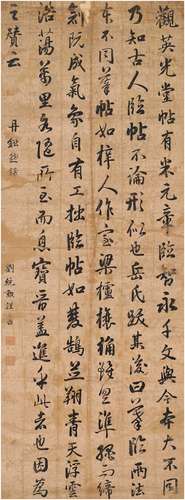 觀英光堂帖有米元章臨智永千文與今本大不同
乃知古人臨帖不論形似也岳氏跋其後曰摹臨兩法
本不同摹帖如梓人作室梁櫨榱桷雖具準繩而締
創既成氣象自有工拙臨帖如雙鵠並翔青天浮雲
浩蕩萬里各隨所至而息寶晉蓋進乎此者也因為
之贊云
劉